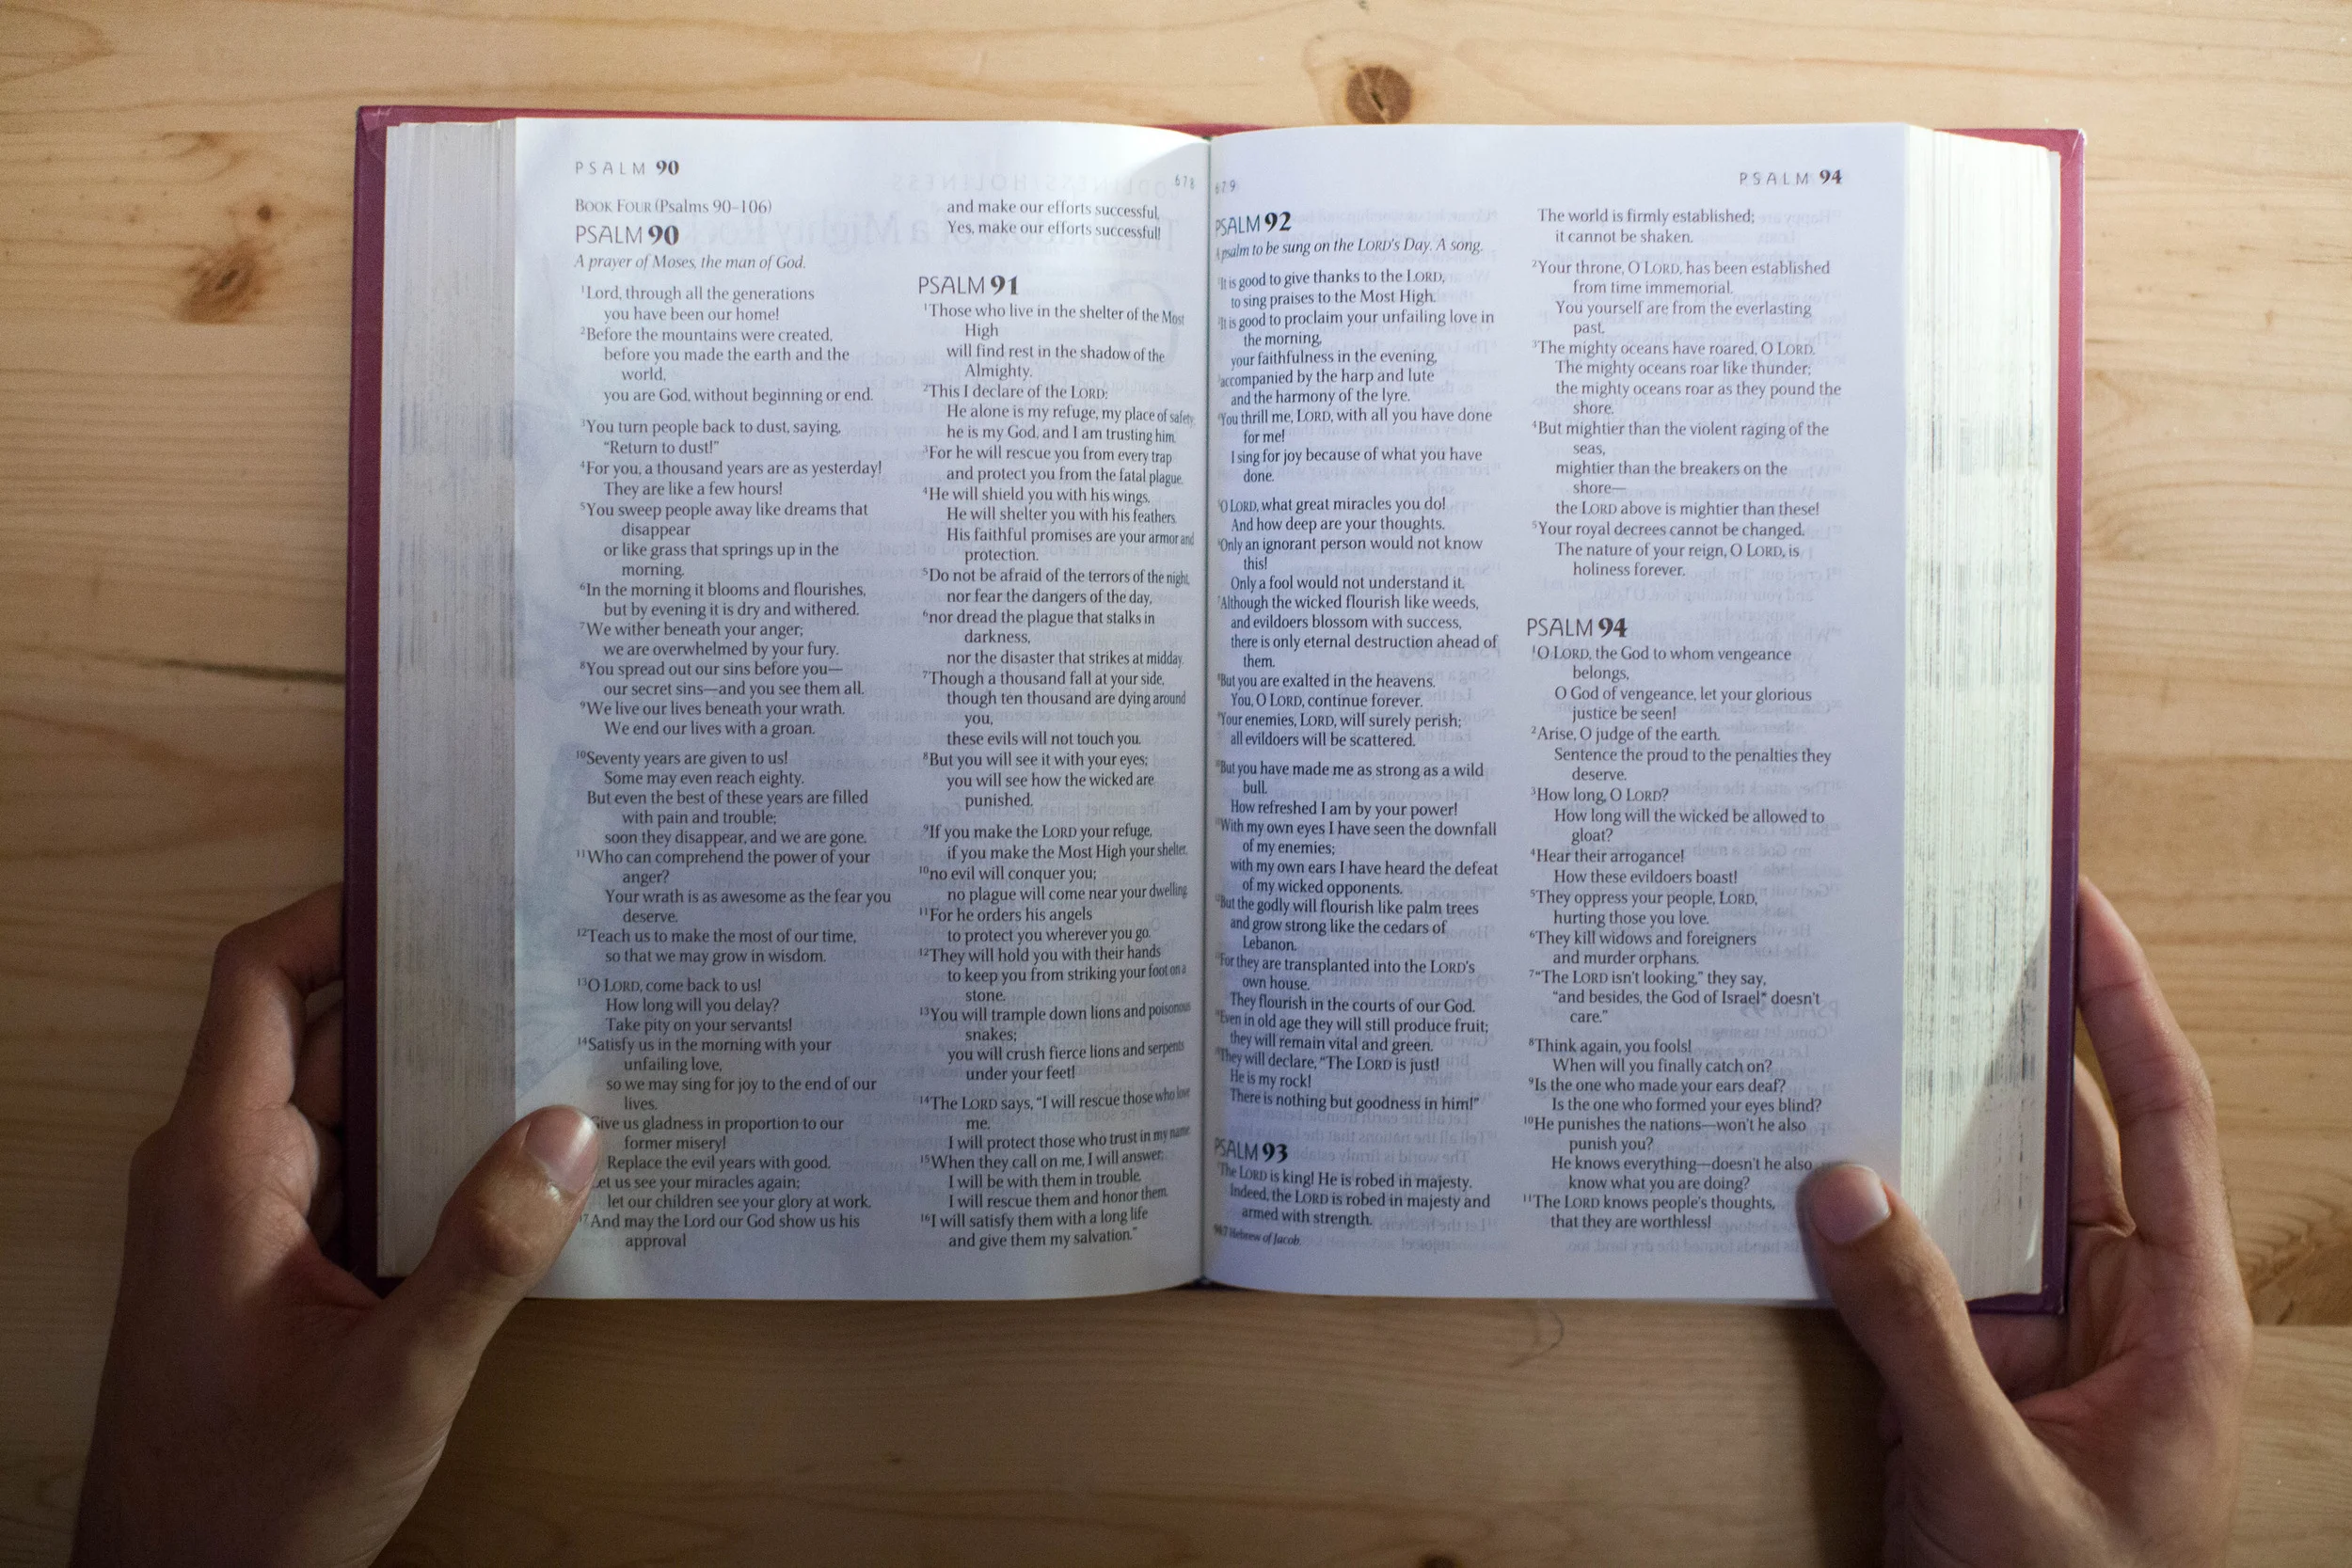 PSALM 90
678
BOOK FOUR (Psalms 90–106)
PSALM 90
A prayer of Moses, the man of God.
1Lord, through all the generations
you have been our home!
2Before the mountains were created,
before you made the earth and the
world,
you are God, without beginning or end.
3You turn people back to dust, saying,
“Return to dust!”
4For you, a thousand years are as yesterday!
They are like a few hours!
5You sweep people away like dreams that
disappear
or like grass that springs up in the
morning.
6In the morning it blooms and flourishes,
but by evening it is dry and withered.
7We wither beneath your anger;
we are overwhelmed by your fury.
8You spread out our sins before you—
our secret sins—and you see them all.
9We live our lives beneath your wrath.
We end our lives with a groan.
10Seventy years are given to us!
Some may even reach eighty.
But even the best of these years are filled
with pain and trouble;
soon they disappear, and we are gone.
11Who can comprehend the power of your
anger?
Your wrath is as awesome as the fear you
deserve.
12Teach us to make the most of our time,
so that we may grow in wisdom.
13O LORD, come back to us!
How long will you delay?
Take pity on your servants!
14Satisfy us in the morning with your
unfailing love,
so we may sing for joy to the end of our
lives.
Give us gladness in proportion to our
former misery!
Replace the evil years with good.
Let us see your miracles again;
let our children see your glory at work.
17And may the Lord our God show us his
approval
and make our efforts successful.
Yes, make our efforts successful!
PSALM 91
1Those who live in the shelter of the Most
High
will find rest in the shadow of the
Almighty.
2This I declare of the LORD:
He alone is my refuge, my place of safety;
he is my God, and I am trusting him.
3For he will rescue you from every trap
and protect you from the fatal plague.
4He will shield you with his wings.
He will shelter you with his feathers.
His faithful promises are your armor and
protection.
5Do not be afraid of the terrors of the night,
nor fear the dangers of the day,
6nor dread the plague that stalks in
darkness,
nor the disaster that strikes at midday.
7Though a thousand fall at your side,
though ten thousand are dying around
you,
these evils will not touch you.
8But you will see it with your eyes;
you will see how the wicked are
punished.
9If you make the LORD your refuge,
if you make the Most High your shelter,
10no evil will conquer you;
no plague will come near your dwelling.
11For he orders his angels
to protect you wherever you go.
12They will hold you with their hands
to keep you from striking your foot on a
stone.
13You will trample down lions and poisonous
snakes;
you will crush fierce lions and serpents
under your feet!
14The LORD says, “I will rescue those who love
me.
I will protect those who trust in my name.
15When they call on me, I will answer;
I will be with them in trouble.
I will rescue them and honor them.
16I will satisfy them with a long life
and give them my salvation.”
679
PSALM 94
PSALM 92
A psalm to be sung on the LORD’s Day. A song.
1It is good to give thanks to the LORD,
to sing praises to the Most High.
2It is good to proclaim your unfailing love in
the morning,
your faithfulness in the evening,
3accompanied by the harp and lute
and the harmony of the lyre.
4You thrill me, LORD, with all you have done
for me!
I sing for joy because of what you have
done.
5O LORD, what great miracles you do!
And how deep are your thoughts.
6Only an ignorant person would not know
this!
Only a fool would not understand it.
7Although the wicked flourish like weeds,
and evildoers blossom with success,
there is only eternal destruction ahead of
them.
8But you are exalted in the heavens.
You, O LORD, continue forever.
9Your enemies, LORD, will surely perish;
all evildoers will be scattered.
10But you have made me as strong as a wild
bull.
How refreshed I am by your power!
11With my own eyes I have seen the downfall
of my enemies;
with my own ears I have heard the defeat
of my wicked opponents.
12But the godly will flourish like palm trees
and grow strong like the cedars of
Lebanon.
13For they are transplanted into the LORD’s
own house.
They flourish in the courts of our God.
14Even in old age they will still produce fruit;
they will remain vital and green.
15They will declare, “The LORD is just!
He is my rock!
There is nothing but goodness in him!”
PSALM 93
1The LORD is king! He is robed in majesty.
Indeed, the LORD is robed in majesty and
armed with strength.
94:7 Hebrew of Jacob.
The world is firmly established;
it cannot be shaken.
2Your throne, O LORD, has been established
from time immemorial.
You yourself are from the everlasting
past.
3The mighty oceans have roared, O LORD.
The mighty oceans roar like thunder;
the mighty oceans roar as they pound the
shore.
4But mightier than the violent raging of the
seas,
mightier than the breakers on the
shore—
the LORD above is mightier than these!
5Your royal decrees cannot be changed.
The nature of your reign, O LORD, is
holiness forever.
PSALM 94
1O LORD, the God to whom vengeance
belongs,
O God of vengeance, let your glorious
justice be seen!
2Arise, O judge of the earth.
Sentence the proud to the penalties they
deserve.
3How long, O LORD?
How long will the wicked be allowed to
gloat?
4Hear their arrogance!
How these evildoers boast!
5They oppress your people, LORD,
hurting those you love.
6They kill widows and foreigners
and murder orphans.
7“The LORD isn’t looking,” they say,
“and besides, the God of Israel* doesn’t
care.”
8Think again, you fools!
When will you finally catch on?
9Is the one who made your ears deaf?
Is the one who formed your eyes blind?
10He punishes the nations—won’t he also
punish you?
He knows everything—doesn’t he also
know what you are doing?
11The LORD knows people’s thoughts,
that they are worthless!